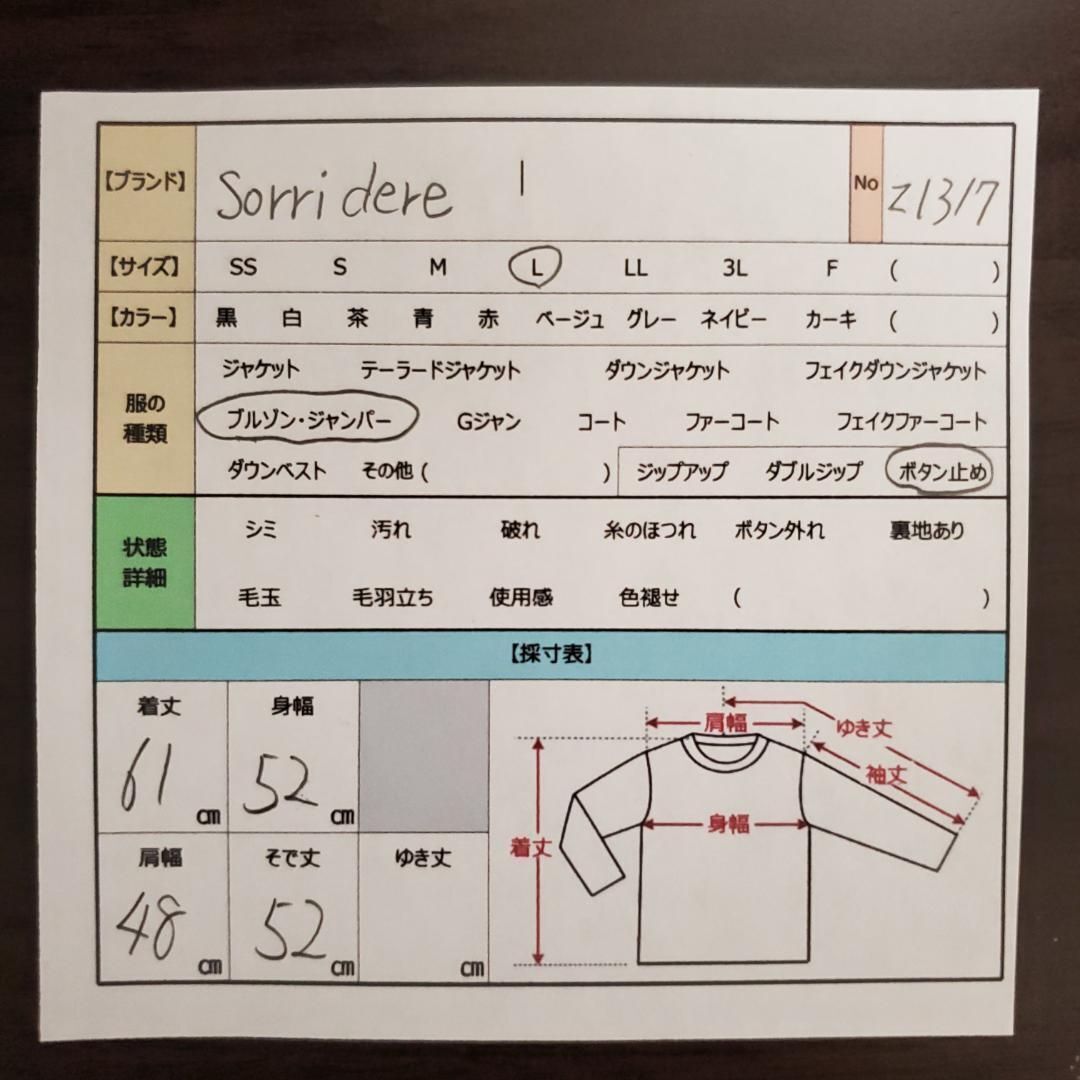 【ブランド】 Sorridere No z1317
【サイズ】 SS S M L LL 3L F ( )
【カラー】 黒 白 茶 青 赤 ベージュ グレー ネイビー カーキ ( )
服の種類
ジャケット テーラードジャケット ダウンジャケット フェイクダウンジャケット
ブルゾン・ジャンパー Gジャン コート ファーコート フェイクファーコート
ダウンベスト その他 ( ) ジップアップ ダブルジップ ボタン止め
状態詳細
シミ 汚れ 破れ 糸のほつれ ボタン外れ 裏地あり
毛玉 毛羽立ち 使用感 色褪せ ( )
【採寸表】
着丈 身幅
61 cm 52 cm
肩幅 そで丈 ゆき丈
48 cm 52 cm cm
肩幅 ゆき丈
袖丈
身幅
着丈